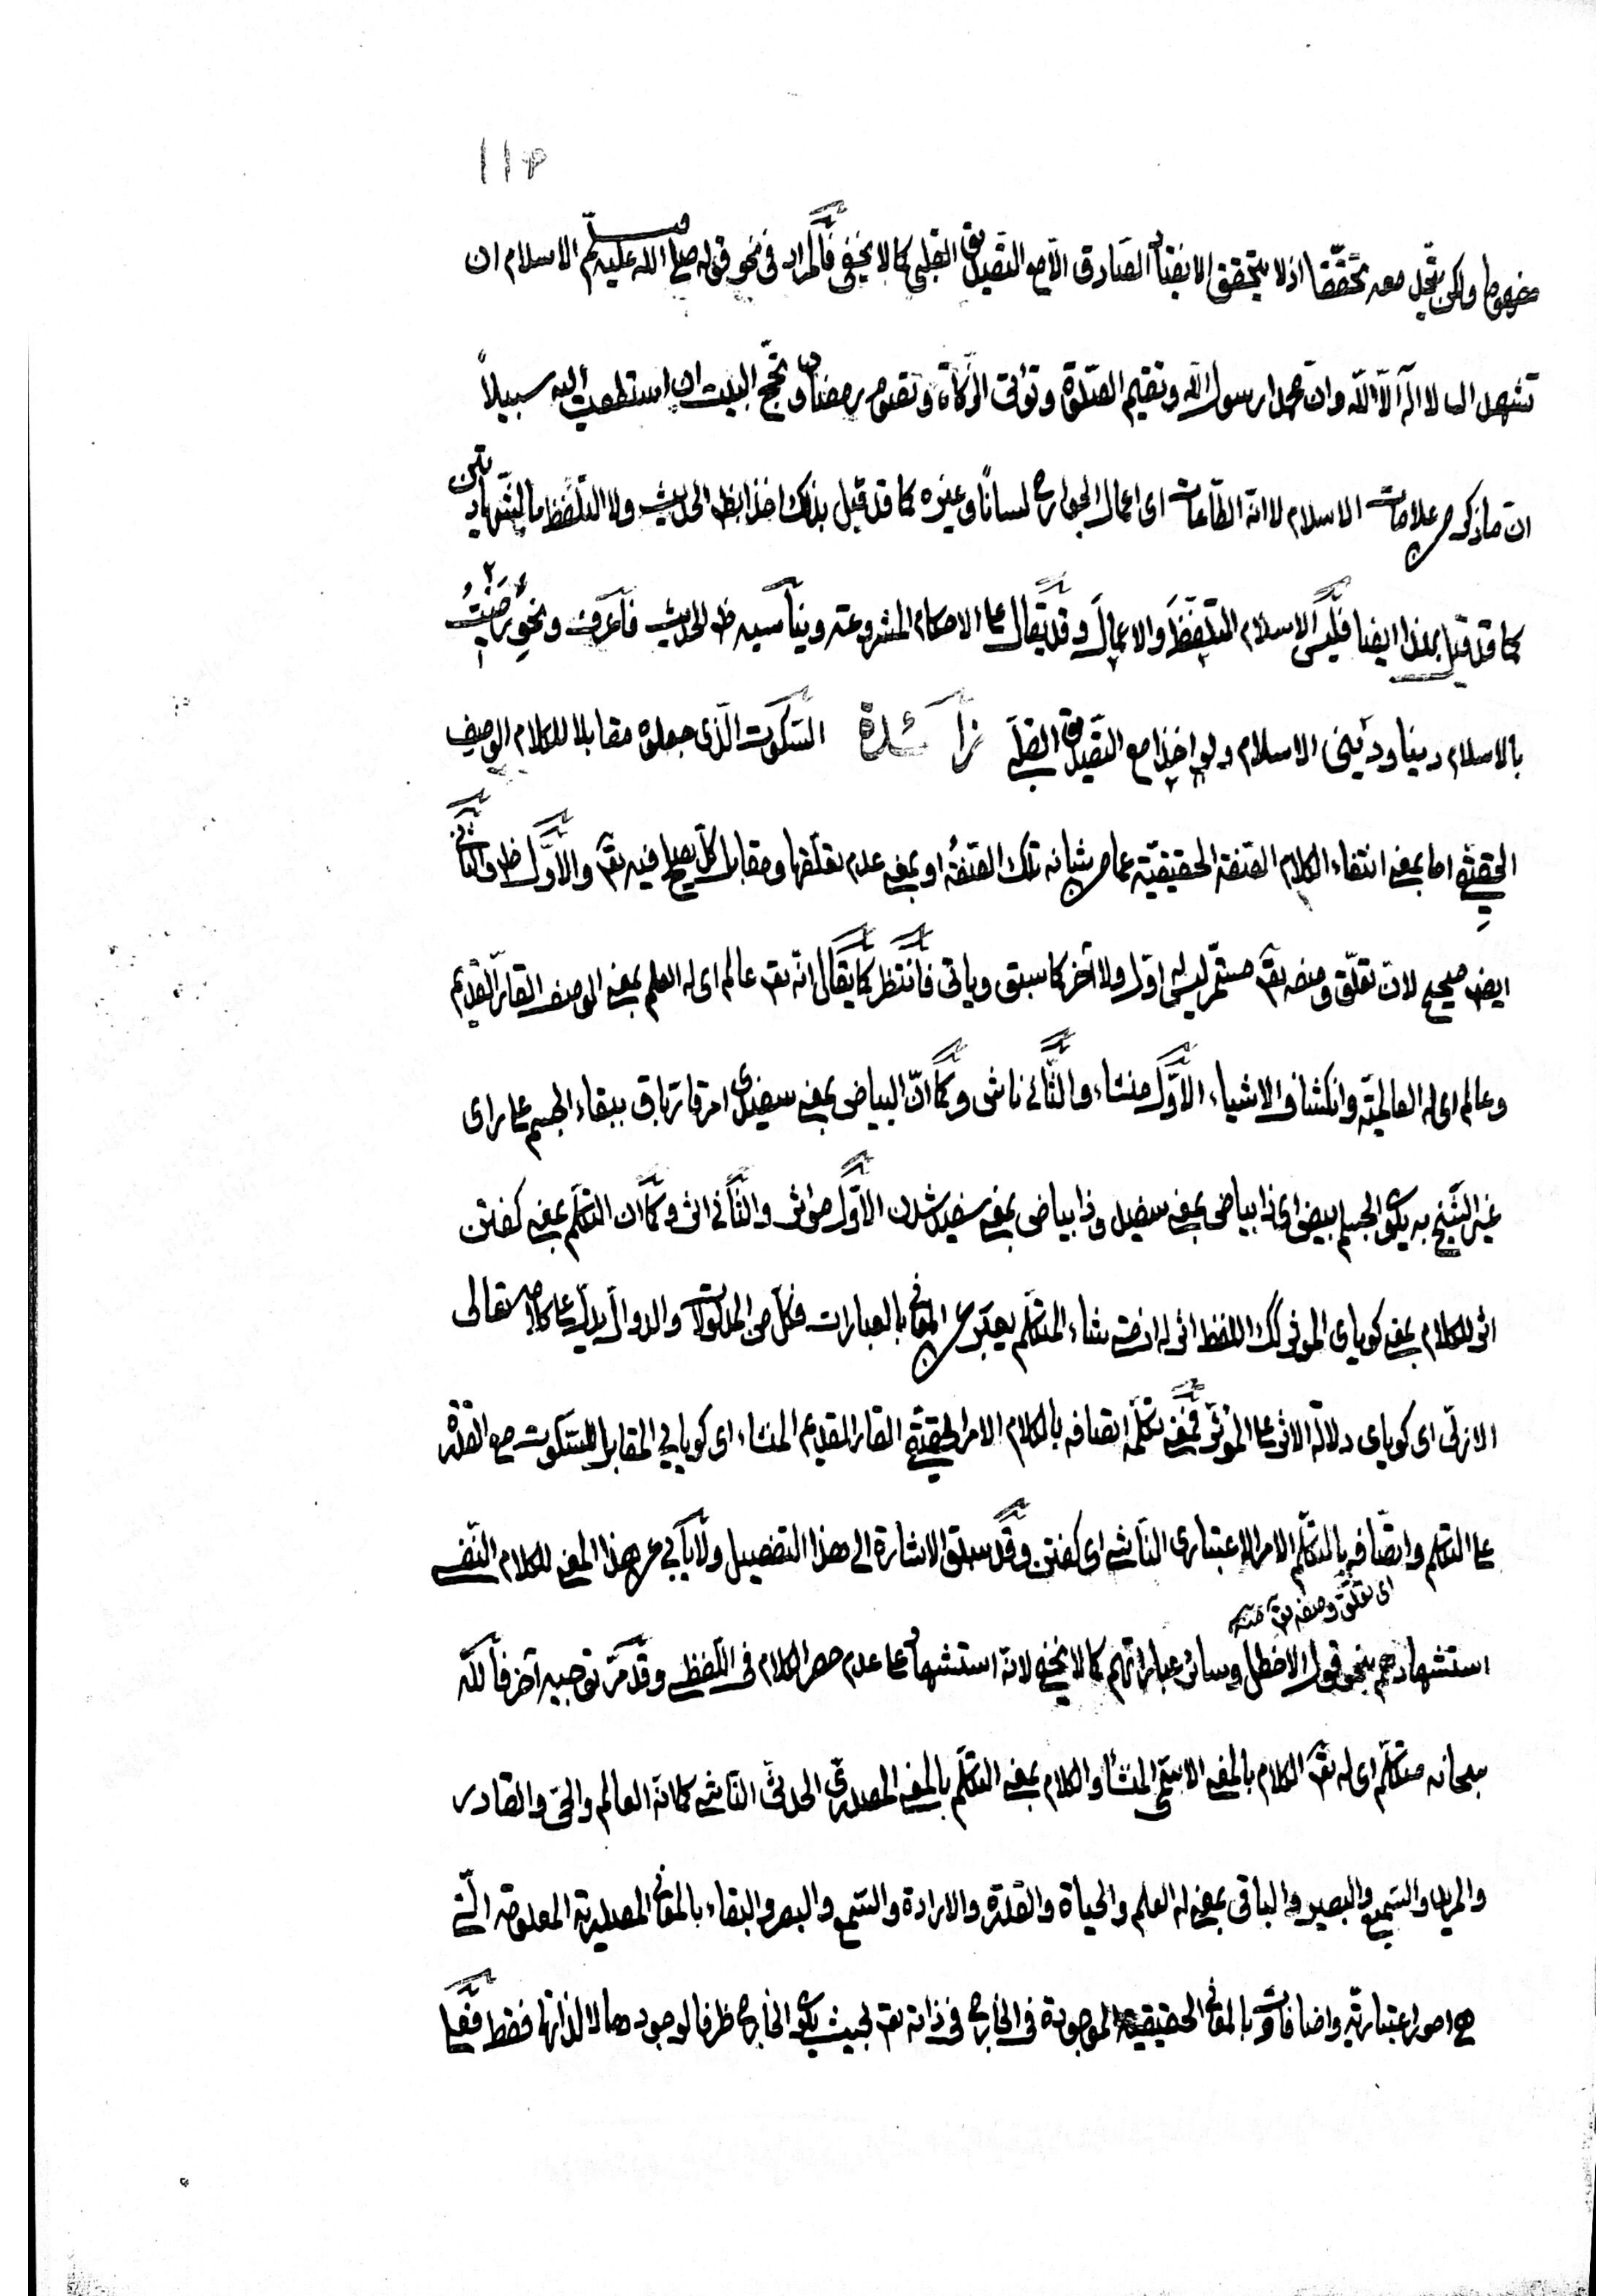 ١١٣
مفهوما ولكن يتحد معه تحققا اذ لا يتحقق الانقياد الصادق الا مع التصديق القلبي كما لا يخفى فالمراد في نحو قوله صلى الله عليه وسلم الاسلام ان
تشهد ان لا اله الا الله وان محمدا رسول الله وتقيم الصلوة وتؤتى الزكاة وتصوم رمضان وتحج البيت ان استطعت اليه سبيلاً
ان ما ذكر من علامات الاسلام لا انه الطاعات اى اعمال الجوارح لسانًا وغيره كما قد قيل بذلك اخذا بظ الحديث ولا التلفظ بالشهادتين
كما قد قيل بهذا ايضا فليس الاسلام التلفظ والاعمال وقد يقال على الاحكام المشروعة ويناسبه ظ الحديث فاعرف ونحو رضيتُ
بالاسلام دينا وديني الاسلام ولو اخذا مع التصديق القلبي زائدة السكوت الذى جعلوه مقابلا للكلام الوصف
الحقيقي اما بمعنى انتفاء الكلام الصفة الحقيقية عما من شانه تلك الصفة او بمعنى عدم تعلقها ومقابل كل يصح فيه تعالى والاول ظ والثاني
ايض صحيح لان تعلق وصفه تع مستمر ليس له اول ولا آخر كما سبق وياتى فانتظر كما يقال انه تع عالم اى له العلم بمعنى الوصف القار القديم
وعالم اى له العالمية وانكشاف الاشياء الاول منشاء والثاني ناشى وكما ان البياض بمعنى سفيدى امر قار باق ببقاء الجسم على راى
غير الشيخ به يكون الجسم ابيض اى ذا بياض بمعنى سفيد وذا بياض بمعنى سفيد شدن الاول مؤثر والثاني اثر وكما ان التكلم بمعنى كفتن
اثر للكلام بمعنى كوياى المؤثر كك اللفظ اثر له اذ متى شاء المتكلم يعبر عن المعاني بالعبارات فكل من المدلولات والدوال يدل على كلامه تعالى
الازلى اى كوياى دلالة الاثر على المؤثر فمعنى تكلمه اتصافه بالكلام الامر الحقيقي القار القديم المنشاء اى كويايي المقابل للسكوت مع القدرة
على التكلم واتصافه بالتكلم الامر الاعتبارى الناشى اى كفتن وقد سبق الاشارة الى هذا التفصيل ولا يأبى عن هذا المعنى للكلام النفسي
اى تعلق وصفه تع منه
استشهادهم بنحو قول الاخطل وسائر عباراتهم كما لا يخفى لانه استشهاد على عدم حصر الكلام في اللفظي وقد مر توجيه آخر فالله
سبحانه متكلم اى له تع الكلام بالمعنى الاسمي المنشأ والكلام بمعنى التكلم بالمعنى المصدرى الحدثى الناشى كما انه العالم والحى والقادر
والمريد والسميع والبصير والباقى بمعنى له العلم والحياة والقدرة والارادة والسمع والبصر والبقاء بالمعاني المصدرية المعلومة التى
هي امور اعتبارية واضافات وبالمعاني الحقيقية الموجودة في الخارج في ذاته تع بحيث يكون الخارج ظرفا لوجودها لا لذاتها فقط فعلى